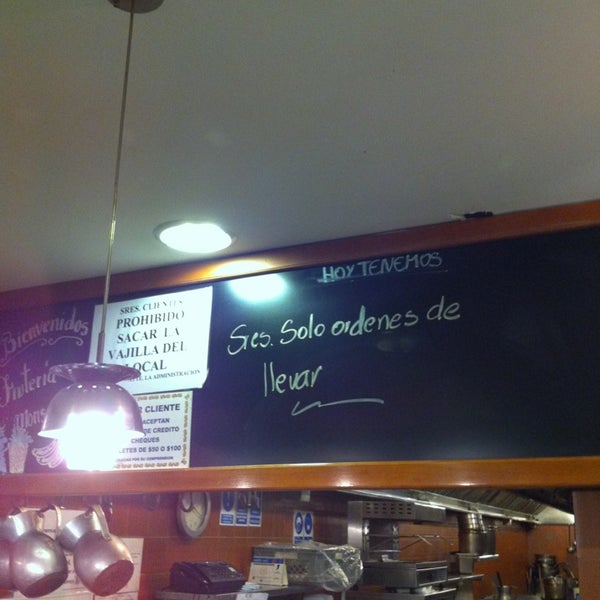 Bienvenidos
Frutería
SRES. CLIENTES
PROHIBIDO
SACAR LA
VAJILLA DEL
LOCAL
LA ADMINISTRACION
CLIENTE
ACEPTAN
DE CREDITO
CHEQUES
DE $50 O $100
HOY TENEMOS
Sres. Solo ordenes de
llevar